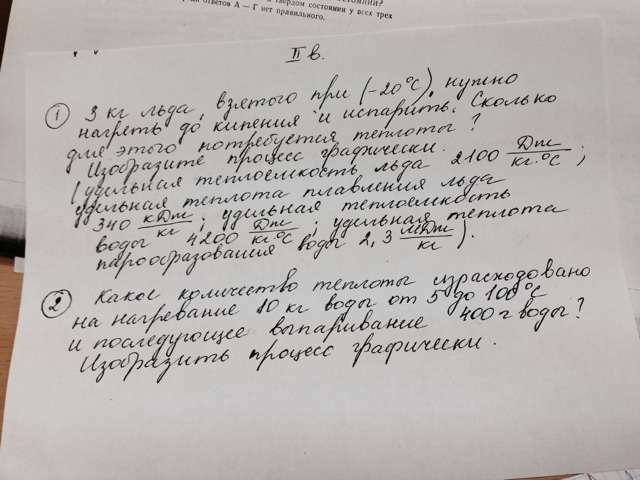 твердом состоянии у всех трех
ответов А — Г нет правильного.
II в.
① 3 кг льда, взятого при (-20°С), нужно
нагреть до кипения и испарить. Сколько
для этого потребуется теплоты?
Изобразите процесс графически.
(удельная теплоёмкость льда 2100 Дж/кг·°С;
удельная теплота плавления льда
340 кДж/кг; удельная теплоёмкость
воды 4200 Дж/кг·°С; удельная теплота
парообразования воды 2,3 МДж/кг).
② Какое количество теплоты израсходовано
на нагревание 10 кг воды от 5 до 100°С
и последующее выпаривание 400 г воды?
Изобразить процесс графически.